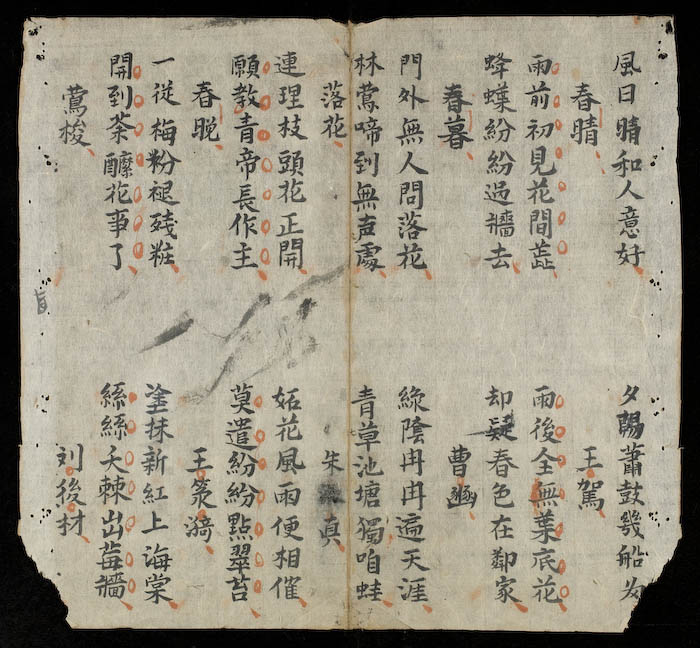 風日晴和人意好 夕陽蕭鼓幾船
春晴 王駕
雨前初見花間蕋 雨後全無葉底花
蜂蝶紛紛過墻去 却疑春色在鄰家
春暮 曹豳
門外無人問落花 綠陰冉冉遍天涯
林鶯啼到無声處 青草池塘獨咱蛙
落花 朱真
連理枝頭花正開 妬花風雨便相催
願教青帝長作主 莫遣紛紛點翠苔
春晚 王
一從梅粉褪残粧 塗抹新紅上海棠
開到荼醾花事了 絲絲天棘出莓墻
鶯梭 刘後材